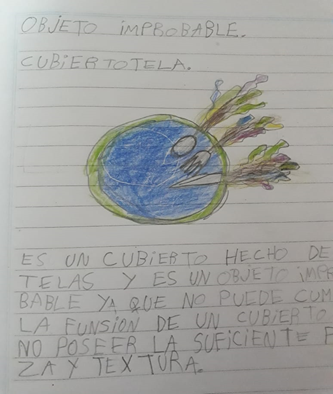 OBJETO iMPROBABLE.
CUBiERTOTELA.
ES UN CUBiERTO HECHO DE
TELAS Y ES UN OBJETO iMPR
BABLE YA QUE NO PUEDE CUM
LA FUNSION DE UN CUBiERTO
NO POSEER LA SUFiCiENTE F
ZA Y TEXTURA.